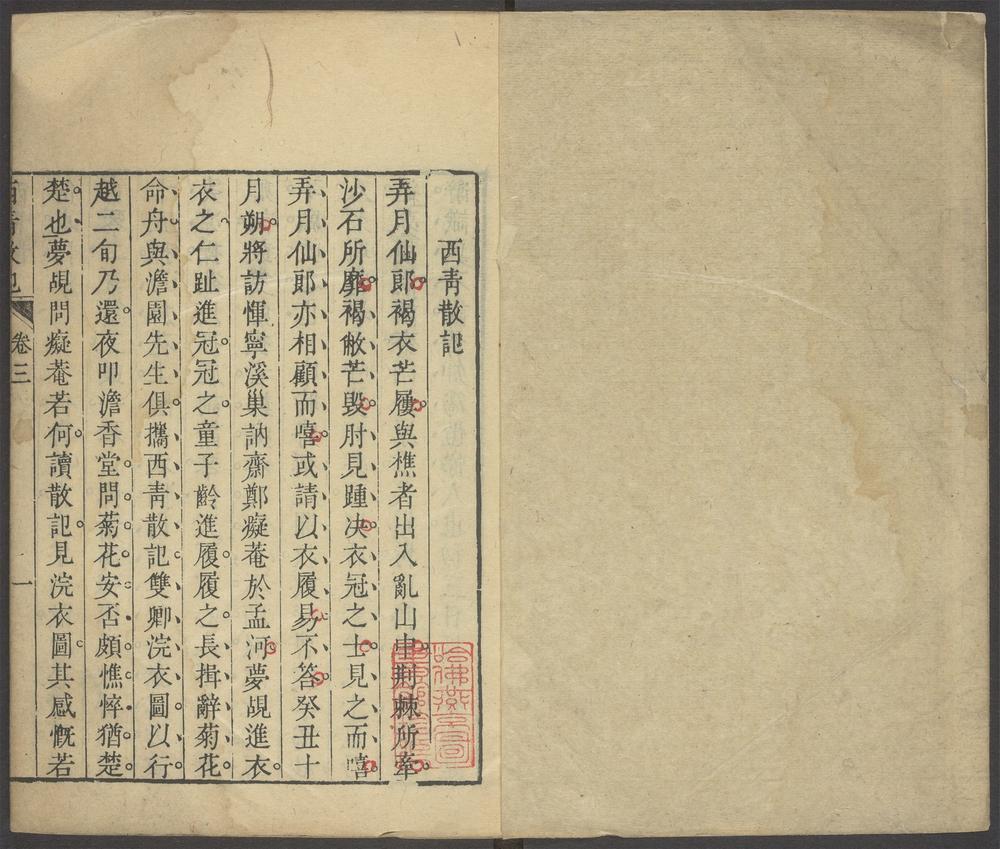 西靑散記
弄月仙郎褐衣芒屨與樵者出入亂山中荆棘所牽
沙石所靡褐敝芒毁肘見踵决衣冠之士見之而嘻
弄月仙郎亦相顧而嘻或請以衣履易不答癸丑十
月朔將訪惲寧溪巢訥齋鄭癡菴於孟河夢覘進衣
衣之仁趾進冠冠之童子齡進履履之長揖辭菊花
命舟與澹園先生俱攜西靑散記雙卿浣衣圖以行
越二旬乃還夜叩澹香堂問菊花安否頗憔悴猶楚
楚也夢覘問癡菴若何讀散記見浣衣圖其感慨若
西靑散記
卷三
一